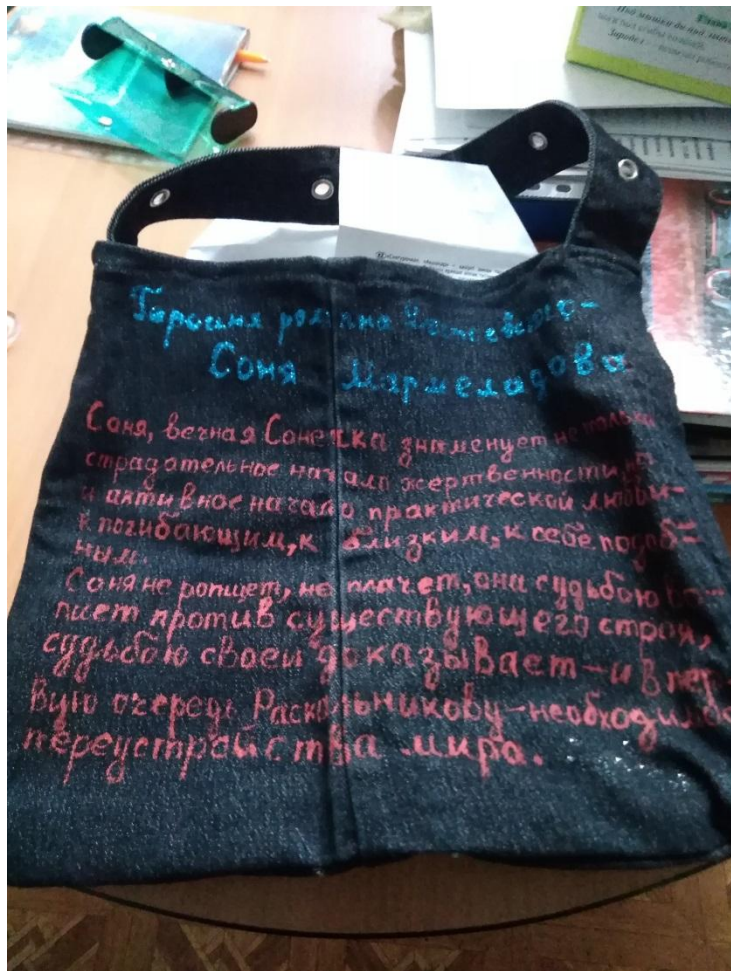 Героиня романа Достоевского-
Соня Мармеладова
Соня, вечная Сонечка знаменует не только
страдательное начало жертвенности, но
и активное начало практической любви-
к погибающим, к близким, к себе подоб=
ным.
Соня не ропщет, не плачет, она судьбою во-
пиет против существующего строя,
судьбою своей доказывает-и в пер-
вую очередь Раскольникову-необходимо
переустройства мира.